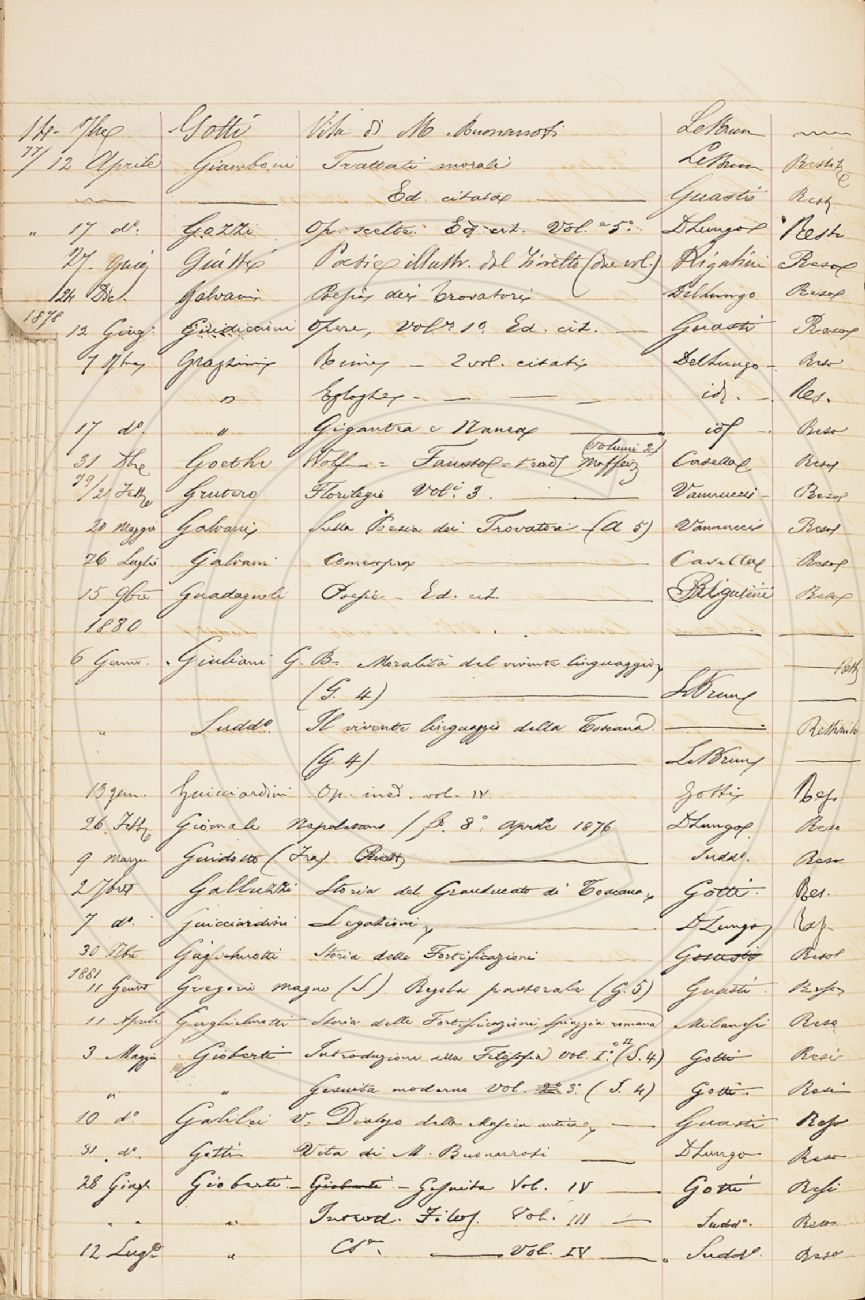 14 7bre Gotti Vita di M. Buonarroti LeBrun
77/12 Aprile Giamboni Trattati morali LeBrun Restit
Ed. citata Guasti Rest
" 17 do. Gozzi Op. scelte. Ed. cit. Vol. 5o D Lungo Restit
27 Giug Giusti Poesie illustr. dal Fioretto (due vol.) Rigutini Reso
24 Dic. Galvani Poesia dei Trovatori Del Lungo Reso
1878
12 Giug. Guidiccioni Opere, Vol. 1o Ed. cit. Guasti Reso
7 Grazzini Rime 2 vol. citati Del Lungo Reso
" Egloghe id. Res.
17 do. " Gigantea e Nanea id Reso
31 Goethe Wolf = Fausto = trad. Maffei (Volumi 2) Casella Reso
79/21 Febb Grutero Florilegio Vol. 3 Vannucci Reso
20 Maggio Galvani Sulla Poesia dei Trovatori (A 5) Vannucci Reso
26 Luglio Galvani Casella Reso
15 9bre Guadagnoli Poesie Ed. cit. Rigutini Reso
1880
6 Genn. Giuliani G. B. Moralità del vivente linguaggio
(G. 4) LeBrun
" Suddo. Il vivente linguaggio della Toscana Restituito
(G 4) LeBrun
13 genn. Guicciardini Op. ined. vol. IV Gotti Res.
26 Febb Giornale Napoletano 8o aprile 1876 D Lungo Reso
9 Marzo Guidotto (Fra) Suddo. Reso
2 7bre Galluzzi Storia del Granducato di Toscana Gotti Res.
7 do. Guicciardini Legazioni D Lungo Res.
30 Guglielmotti Storia delle Fortificazioni Guasti Reso
1881
11 Genn Gregorio magno (S.) Regola pastorale (G. 5) Guasti Reso
11 Aprile Guglielmotti Storia delle Fortificazioni spiaggia romana Milanesi Reso
3 Maggio Gioberti Introduzione alla Filosofia Vol. I. II (S. 4) Gotti Resi
" " Gesuita moderno Vol. 2o 3o (S. 4) Gotti Resi
10 do. Galilei V. Dialogo della Musica antica Guasti Reso
31 do. Gotti Vita di M. Buonarroti D Lungo Reso
28 Giug Gioberti Gioberti Gesuita Vol. IV Gotti Resi
" " " Introd. Filos. Vol. III Suddo. Reso
12 Lugo " Vol. IV Suddo. Reso